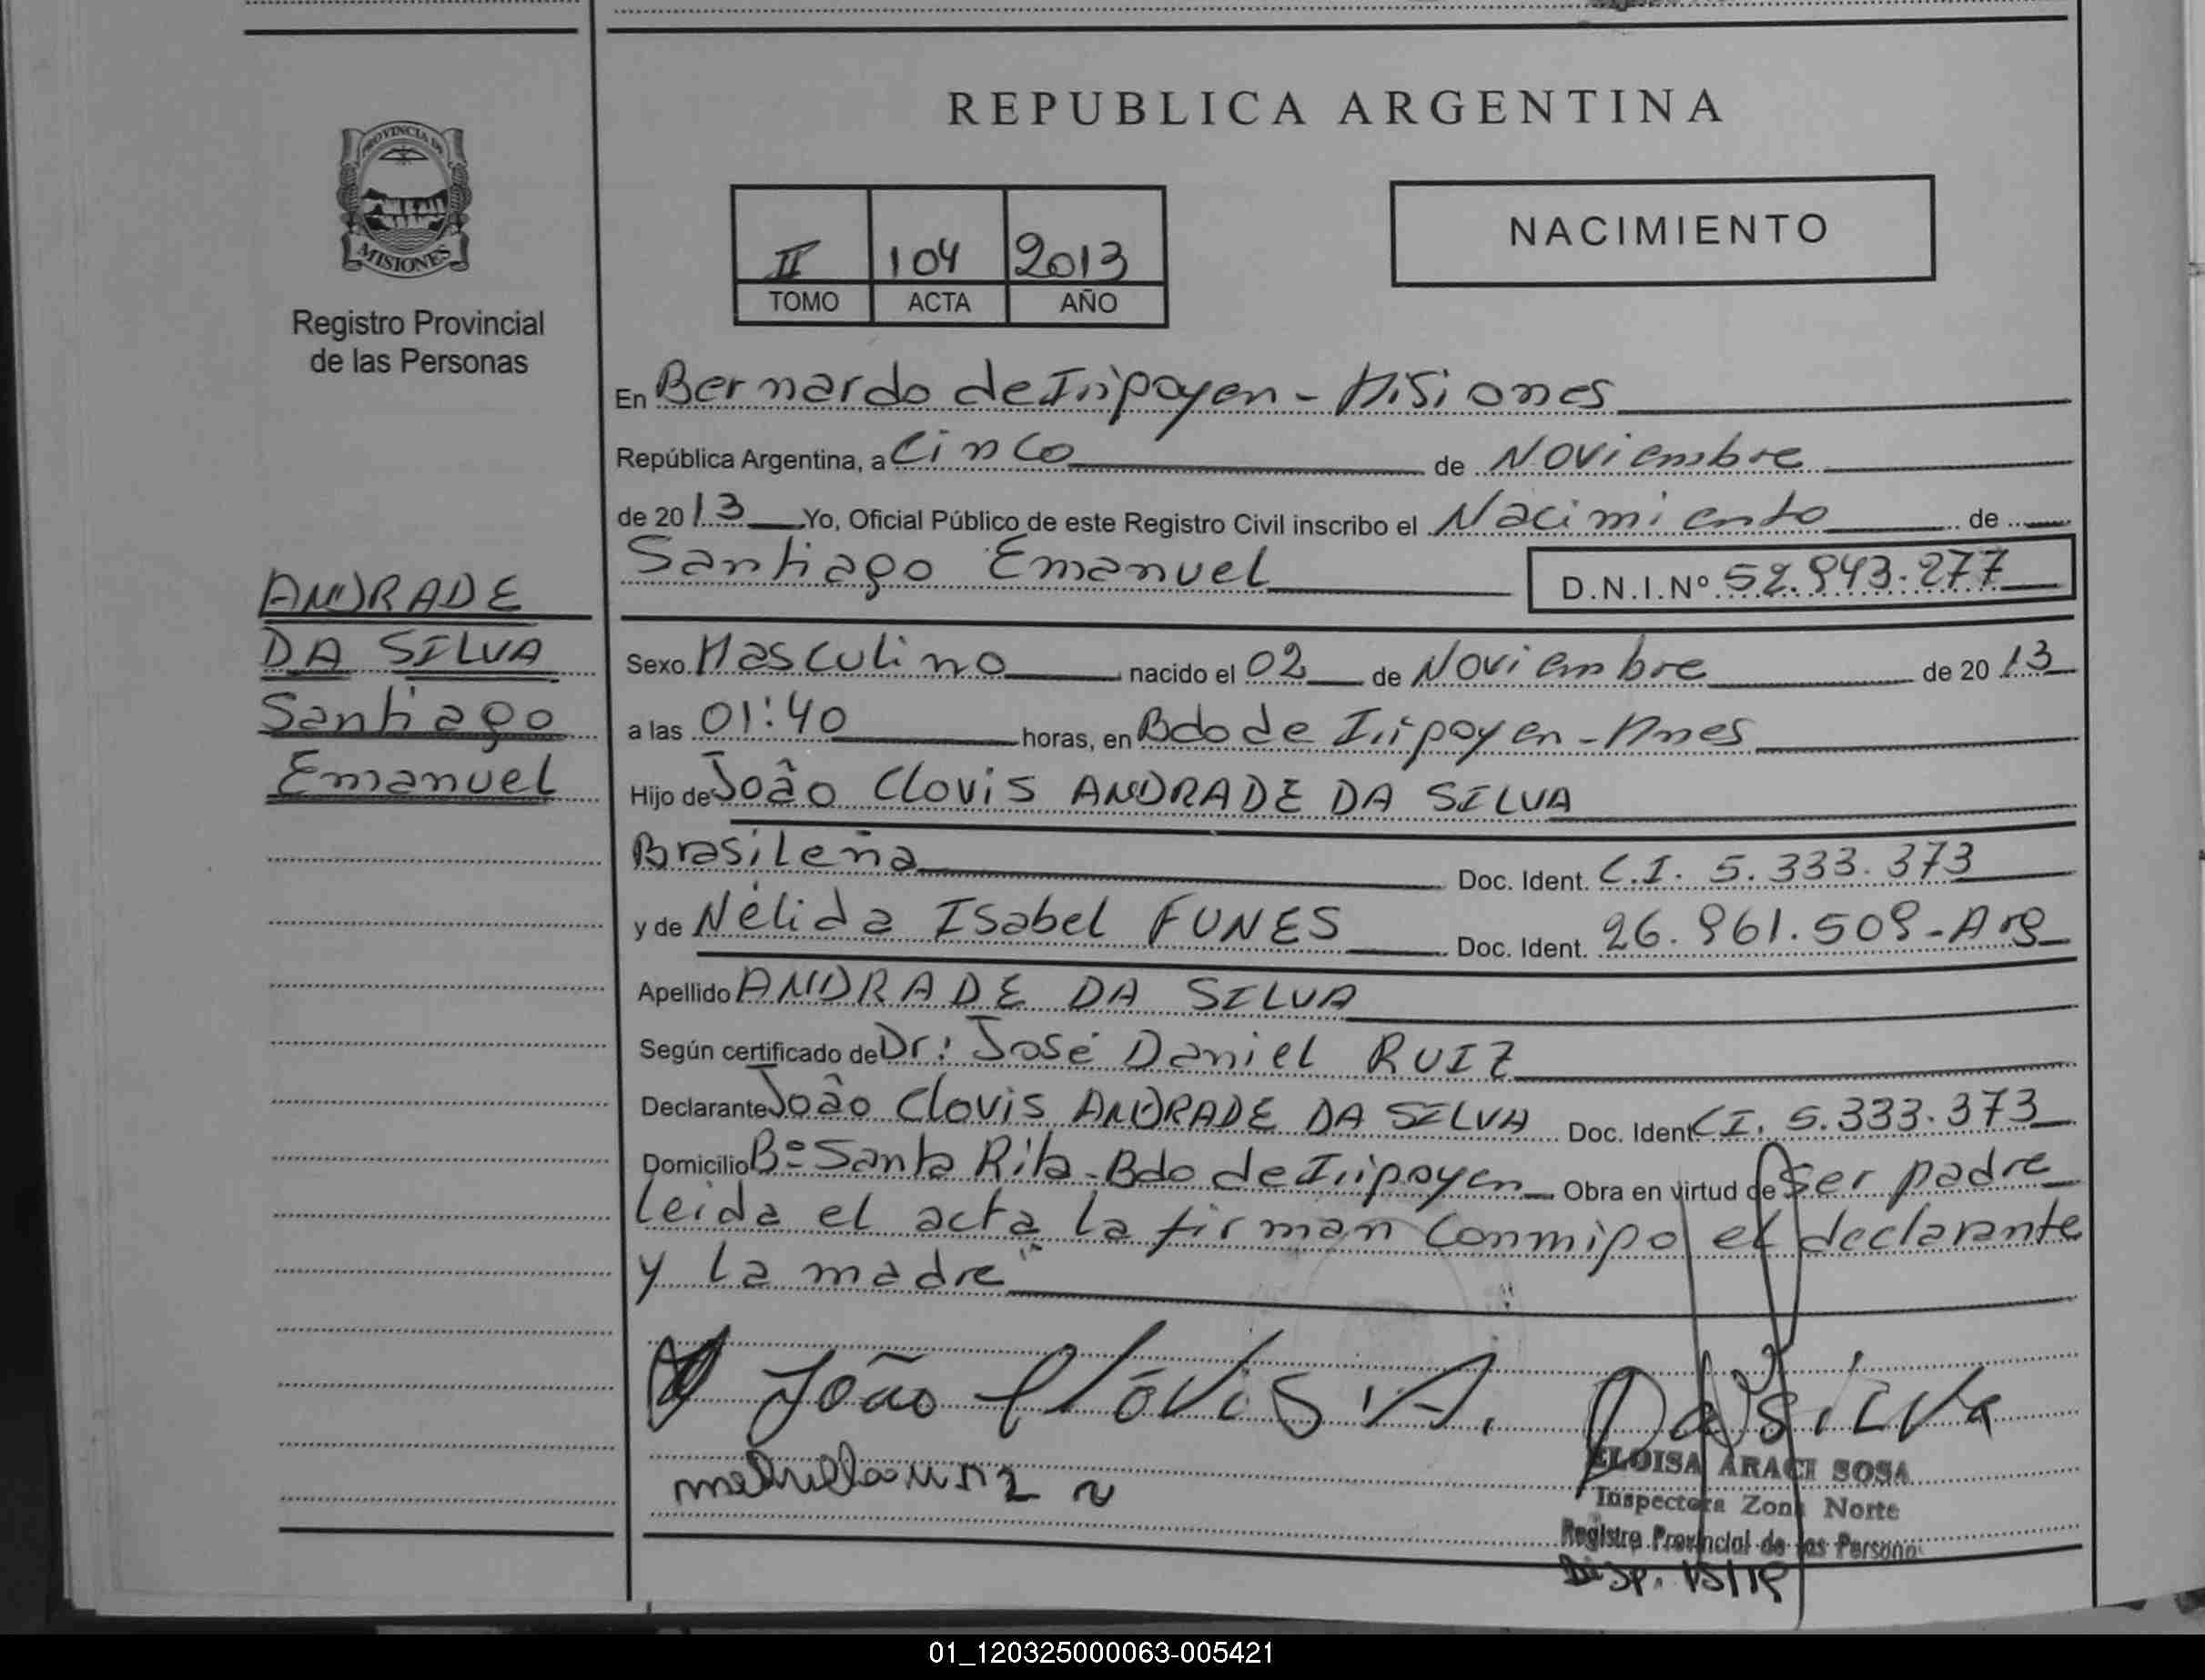 REPUBLICA ARGENTINA
PROVINCIA DE
MISIONES
Registro Provincial
de las Personas
II 104 2013
TOMO ACTA AÑO
NACIMIENTO
En Bernardo de Irigoyen - Misiones
República Argentina, a Cinco de Noviembre
de 2013 Yo, Oficial Público de este Registro Civil inscribo el Nacimiento de
Santiago Emanuel D.N.I.Nº 52.943.277
ANDRADE
DA SILVA
Santiago
Emanuel
Sexo Masculino nacido el 02 de Noviembre de 2013
a las 01:40 horas, en Bdo de Irigoyen - Mnes
Hijo de João Clovis ANDRADE DA SILVA
Brasileña Doc. Ident. C.I. 5.333.373
y de Nélida Isabel FUNES Doc. Ident. 26.961.509 - Arg
Apellido ANDRADE DA SILVA
Según certificado de Dr: José Daniel RUIZ
Declarante João Clovis ANDRADE DA SILVA Doc. Ident C.I. 5.333.373
Domicilio Bº Santa Rita - Bdo de Irigoyen Obra en virtud de ser padre
Leida el acta la firman conmigo el declarante
y la madre
João Clóvis A. Da Silva
ELOISA ARACI SOSA
Inspectora Zona Norte
Registro Provincial de las Personas
Disp.
01_120325000063-005421